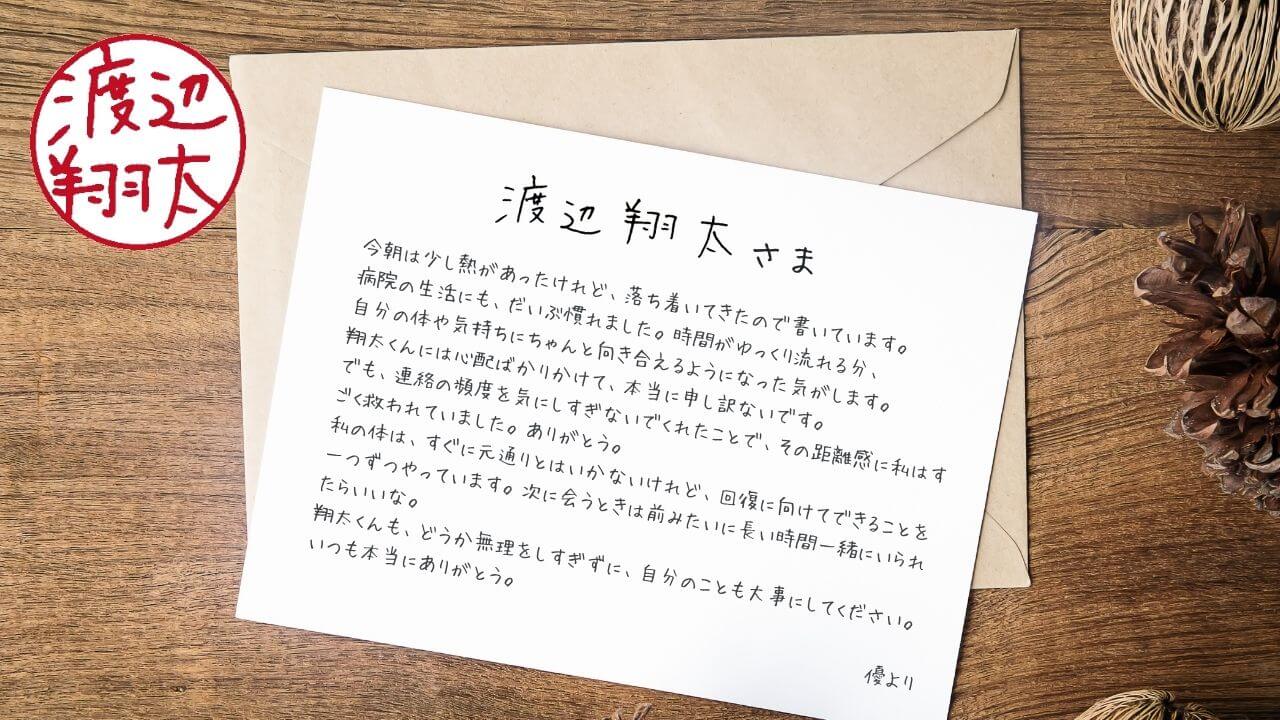 渡辺
翔太
渡辺翔太さま
今朝は少し熱があったけれど、落ち着いてきたので書いています。
病院の生活にも、だいぶ慣れました。時間がゆっくり流れる分、
自分の体や気持ちにちゃんと向き合えるようになった気がします。
翔太くんには心配ばかりかけて、本当に申し訳ないです。
でも、連絡の頻度を気にしすぎないでくれたことで、その距離感に私はす
ごく救われていました。ありがとう。
私の体は、すぐに元通りとはいかないけれど、回復に向けてできることを
一つずつやっています。次に会うときは前みたいに長い時間一緒にいられ
たらいいな。
翔太くんも、どうか無理をしすぎずに、自分のことも大事にしてください。
いつも本当にありがとう。
優より